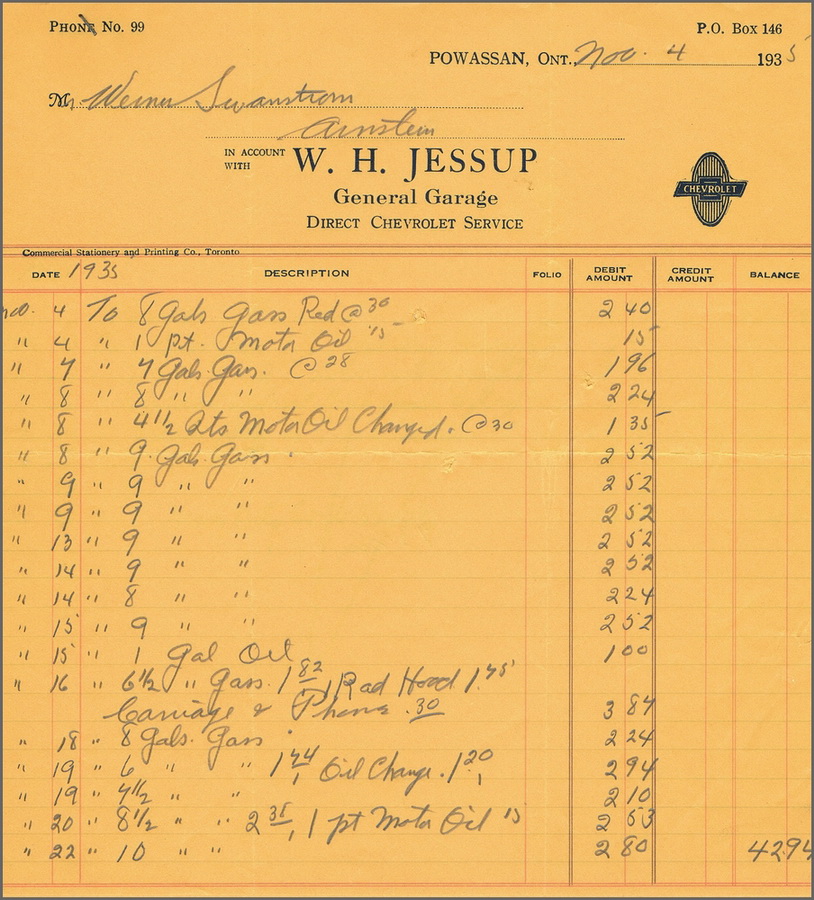 PHONE No. 99
P.O. Box 146
POWASSAN, ONT., Nov. 4 1935
Mr. Werner Swanstrom
Arnstein
IN ACCOUNT WITH W. H. JESSUP
General Garage
DIRECT CHEVROLET SERVICE
CHEVROLET
Commercial Stationery and Printing Co., Toronto
DATE 1935 DESCRIPTION FOLIO DEBIT AMOUNT CREDIT AMOUNT BALANCE
Nov. 4 To 8 Gals Gass Red @ 30 2 40
" 4 " 1 pt. Motor Oil 15 15
" 7 " 7 Gals. Gas. @ 28 1 96
" 8 " 8 " " 2 24
" 8 " 4 1/2 Qts Motor Oil Changed. @ 30 1 35
" 8 " 9 Gals. Gass 2 52
" 9 " 9 " " 2 52
" 9 " 9 " " 2 52
" 13 " 9 " " 2 52
" 14 " 9 " " 2 52
" 14 " 8 " " 2 24
" 15 " 9 " " 2 52
" 15 " 1 Gal Oil 1 00
" 16 " 6 1/2 " Gass. 1 82, 1 Rad Hood 1.75
Carriage & Phone .30 3 87
" 18 " 8 Gals. Gass 2 24
" 19 " 6 " " 1 74, Oil Change. 1 20 2 94
" 19 " 7 1/2 " " 2 10
" 20 " 8 1/2 " " 2 38, 1 pt Motor Oil 15 2 53
" 22 " 10 " " 2 80 42 94